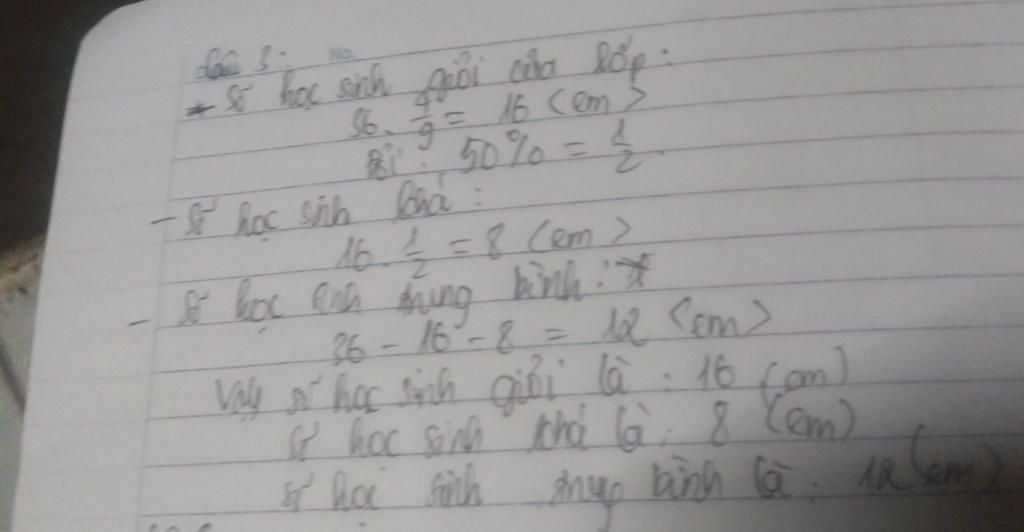 Bài 3: No.
* Số học sinh giỏi của lớp:
36 . 4/9 = 16 (em)
Đổi: 50% = 1/2.
- Số học sinh khá:
16 . 1/2 = 8 (em)
- Số học sinh trung bình:
36 - 16 - 8 = 12 (em)
Vậy số học sinh giỏi là: 16 (em)
số học sinh khá là: 8 (em)
số học sinh trung bình là: 12 (em)